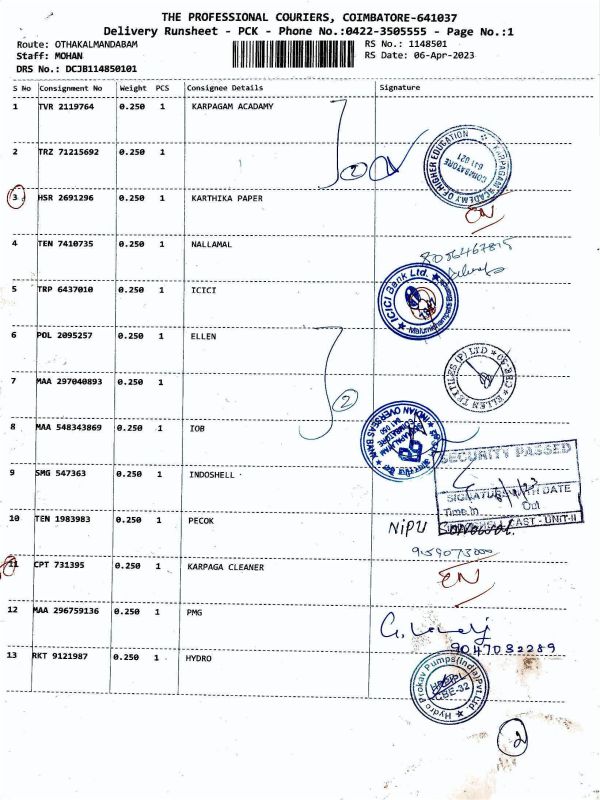 THE PROFESSIONAL COURIERS, COIMBATORE-641037
Delivery Runsheet - PCK - Phone No.:0422-3505555 - Page No.:1
Route: OTHAKALMANDABAM RS No.: 1148501
Staff: MOHAN RS Date: 06-Apr-2023
DRS No.: DCJB114850101
S No Consignment No Weight PCS Consignee Details Signature
1 TVR 2119764 0.250 1 KARPAGAM ACADAMY
2 TRZ 71215692 0.250 1
KARPAGAM ACADEMY OF HIGHER EDUCATION
COIMBATORE
641 021
3 HSR 2691296 0.250 1 KARTHIKA PAPER
EN
4 TEN 7410735 0.250 1 NALLAMAL
5 TRP 6437010 0.250 1 ICICI
ICICI Bank Ltd.
6 POL 2095257 0.250 1 ELLEN
7 MAA 297040893 0.250 1
2
ELLEN TEXTILES (P) LTD
8 MAA 548343869 0.250 1 IOB
INDIAN OVERSEAS BANK
SECURITY PASSED
9 SMG 547363 0.250 1 INDOSHELL
SIGNATURE WITH DATE
Time.In Out
CAST - UNIT-II
10 TEN 1983983 0.250 1 PECOK
NiPU
11 CPT 731395 0.250 1 KARPAGA CLEANER
EN
12 MAA 296759136 0.250 1 PMG
9047032289
13 RKT 9121987 0.250 1 HYDRO
Hydro Prokav Pumps(India)Pvt.Ltd
CBE-32
2